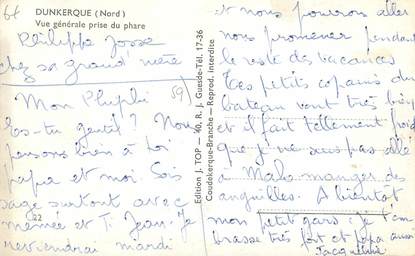 64
DUNKERQUE (Nord)
Vue générale prise du phare
Philippe Josse
chez sa grand mère
59
Mon Phiphi
Es-tu gentil ? Nous
pensons bien à toi
papa et moi. Sois
sage surtout avec
mémée et T. Jean. Je
22
reviendrai mardi
Edition J. TOP - 40, R. J. Guesde-Tél. 17-36
Coudekerque-Branche — Reprod. interdite
et nous pourrons aller
nous promener pendant
le reste des vacances
Les petits copains du
bateau vont très bien
et il fait tellement froid
que j'ne suis pas allé
à Malo manger des
anguilles. A bientôt
mon petit gars je t'em
brasse très fort et papa aussi
Jacqueline